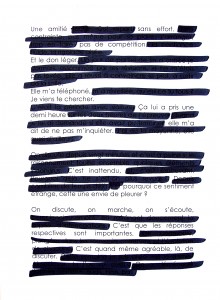 Une amitié sans effort.
pas de compétition
Et le don léger.
Elle m'a téléphoné.
Je viens te chercher.
Ça lui a pris une
demi heure
elle m'a
dit de ne pas m'inquiéter.
C'est inattendu.
pourquoi ce sentiment
étrange, cette envie de pleurer ?
On discute, on marche, on s'écoute.
C'est que les réponses
respectives sont importantes.
C'est quand même agréable, là, de
discuter.